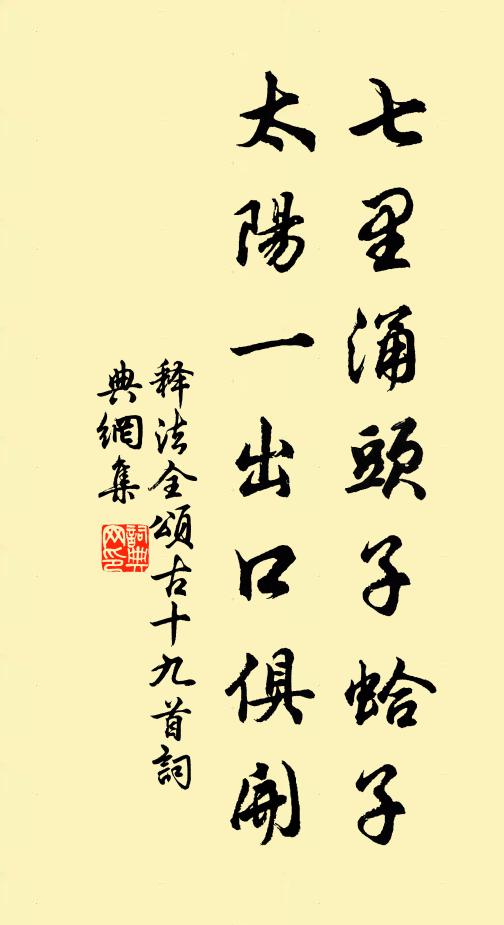 七里涌頭子蛤子
太陽一出口俱開
释法全頌古十九首詞
典網集
詞典網印